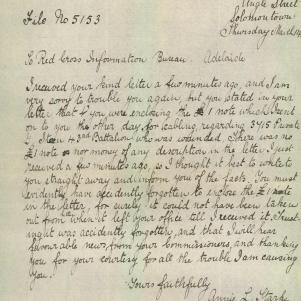 File No 5153
Angle Street
Solomontown
Thursday March
To Red Cross Information Bureau. Adelaide
I received your kind letter a few minutes ago, and I am
very sorry to trouble you again, but you stated in your
letter that you were enclosing the £1 note which I sent
on to you the other day for cabling regarding 3415 Private
43rd Battalion who was wounded. There was no
£1 note nor money of any description in the letter. I just
received a few minutes ago, so I thought it best to write to
you straight away and inform you of the facts. You must
evidently have accidently forgotten to enclose the £1 note
in the letter, for surely it could not have been taken
out from when it left your office till I received it. I trust
might was accidently forgotten, and that I will hear
favourable news, from your Commissioners, and thanking
you for your courtesy for all the trouble I am causing
you.
Yours faithfully
Annie L.